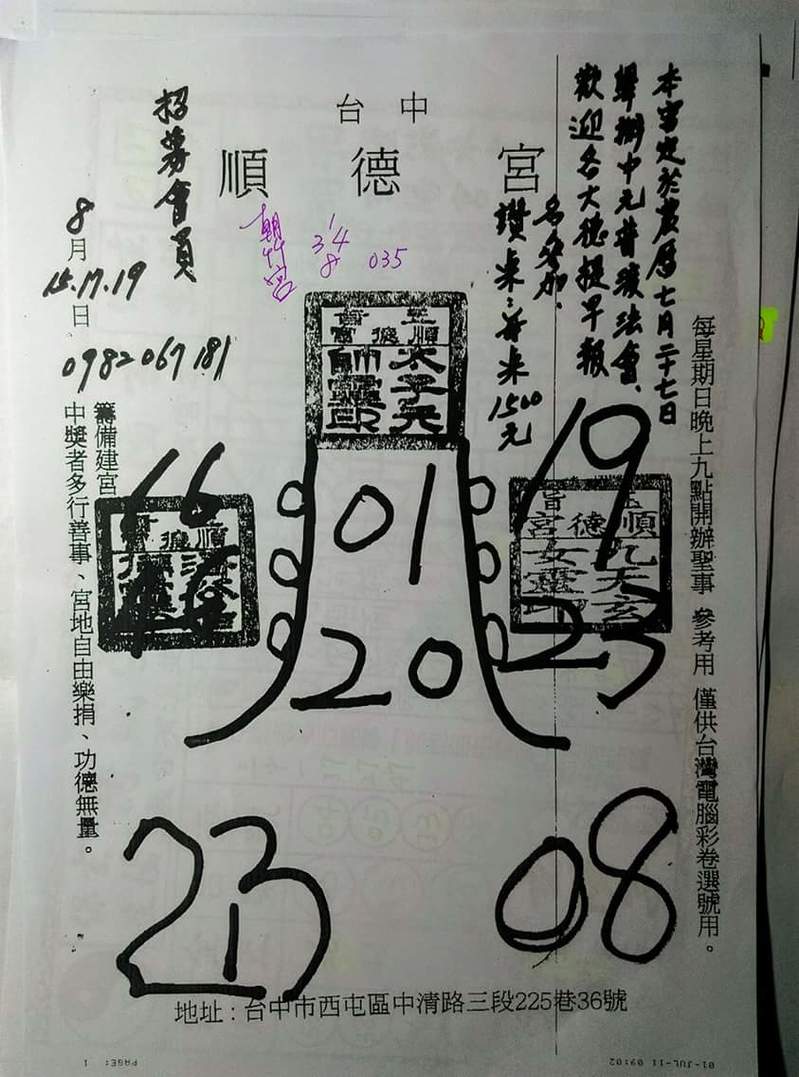 台中
順德宮
本宮定於農曆七月二十七日
舉辦中元普渡法會、
歡迎各大德提早報
名參加.
讚米:普米1500元
每星期日晚上九點開辦聖事 參考用 僅供台灣電腦彩卷選號用。
招募會員
8月
15.17.19
日
0982067181
朝竹宮
1
34
8
035
玉旨
順德宮
太子元
帥靈印
01
20
玉旨
順德宮
九天玄
女靈
19
23
順德
16
籌備建宮
中獎者多行善事、宮地自由樂捐、功德無量。
213
08
地址:台中市西屯區中清路三段225巷36號
01-JUL-11 09:02
PAGE: 1